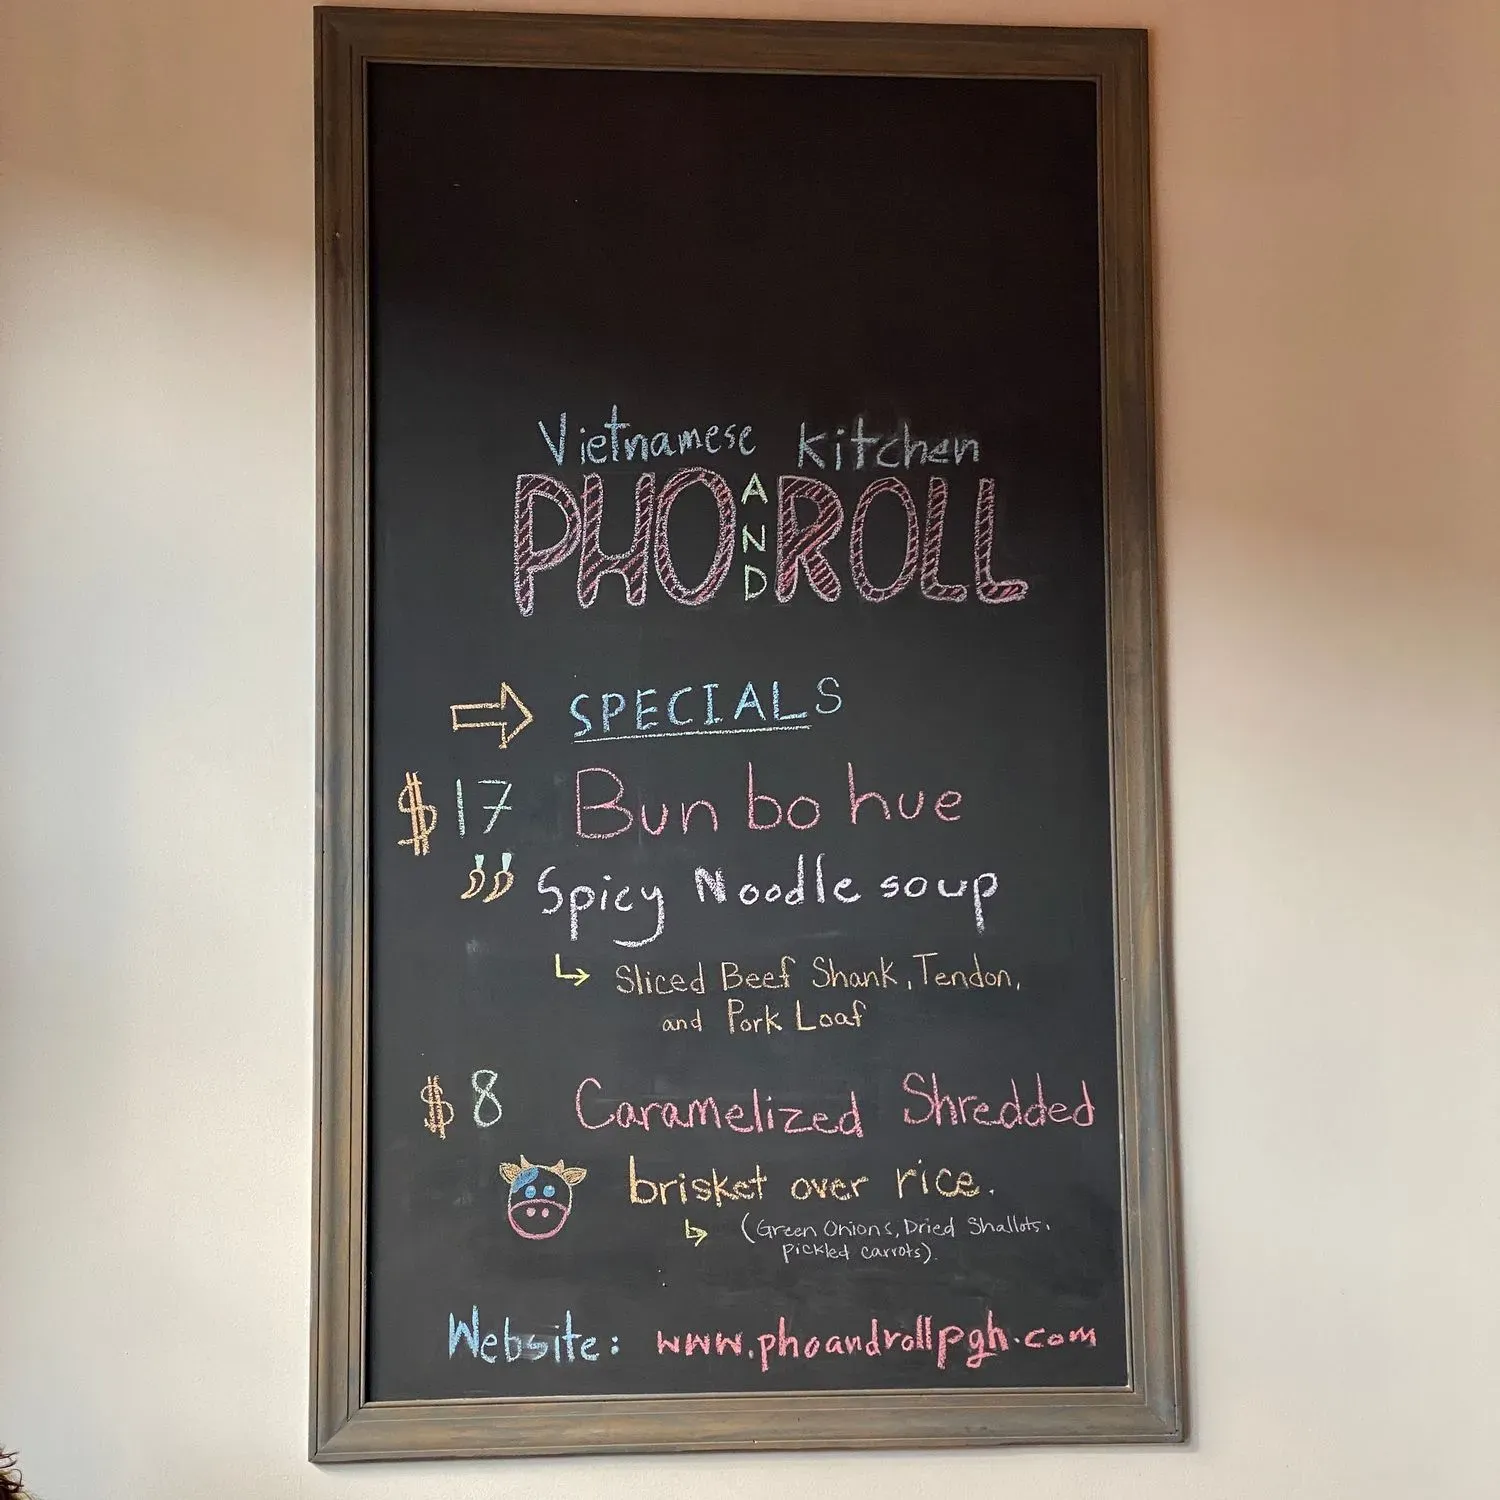 Vietnamese Kitchen
PHO AND ROLL
SPECIALS
$17 Bun bo hue
Spicy Noodle soup
Sliced Beef Shank, Tendon,
and Pork Loaf
$8 Caramelized Shredded
brisket over rice.
(Green Onions, Dried Shallots,
pickled carrots).
Website: www.phoandrollpgh.com